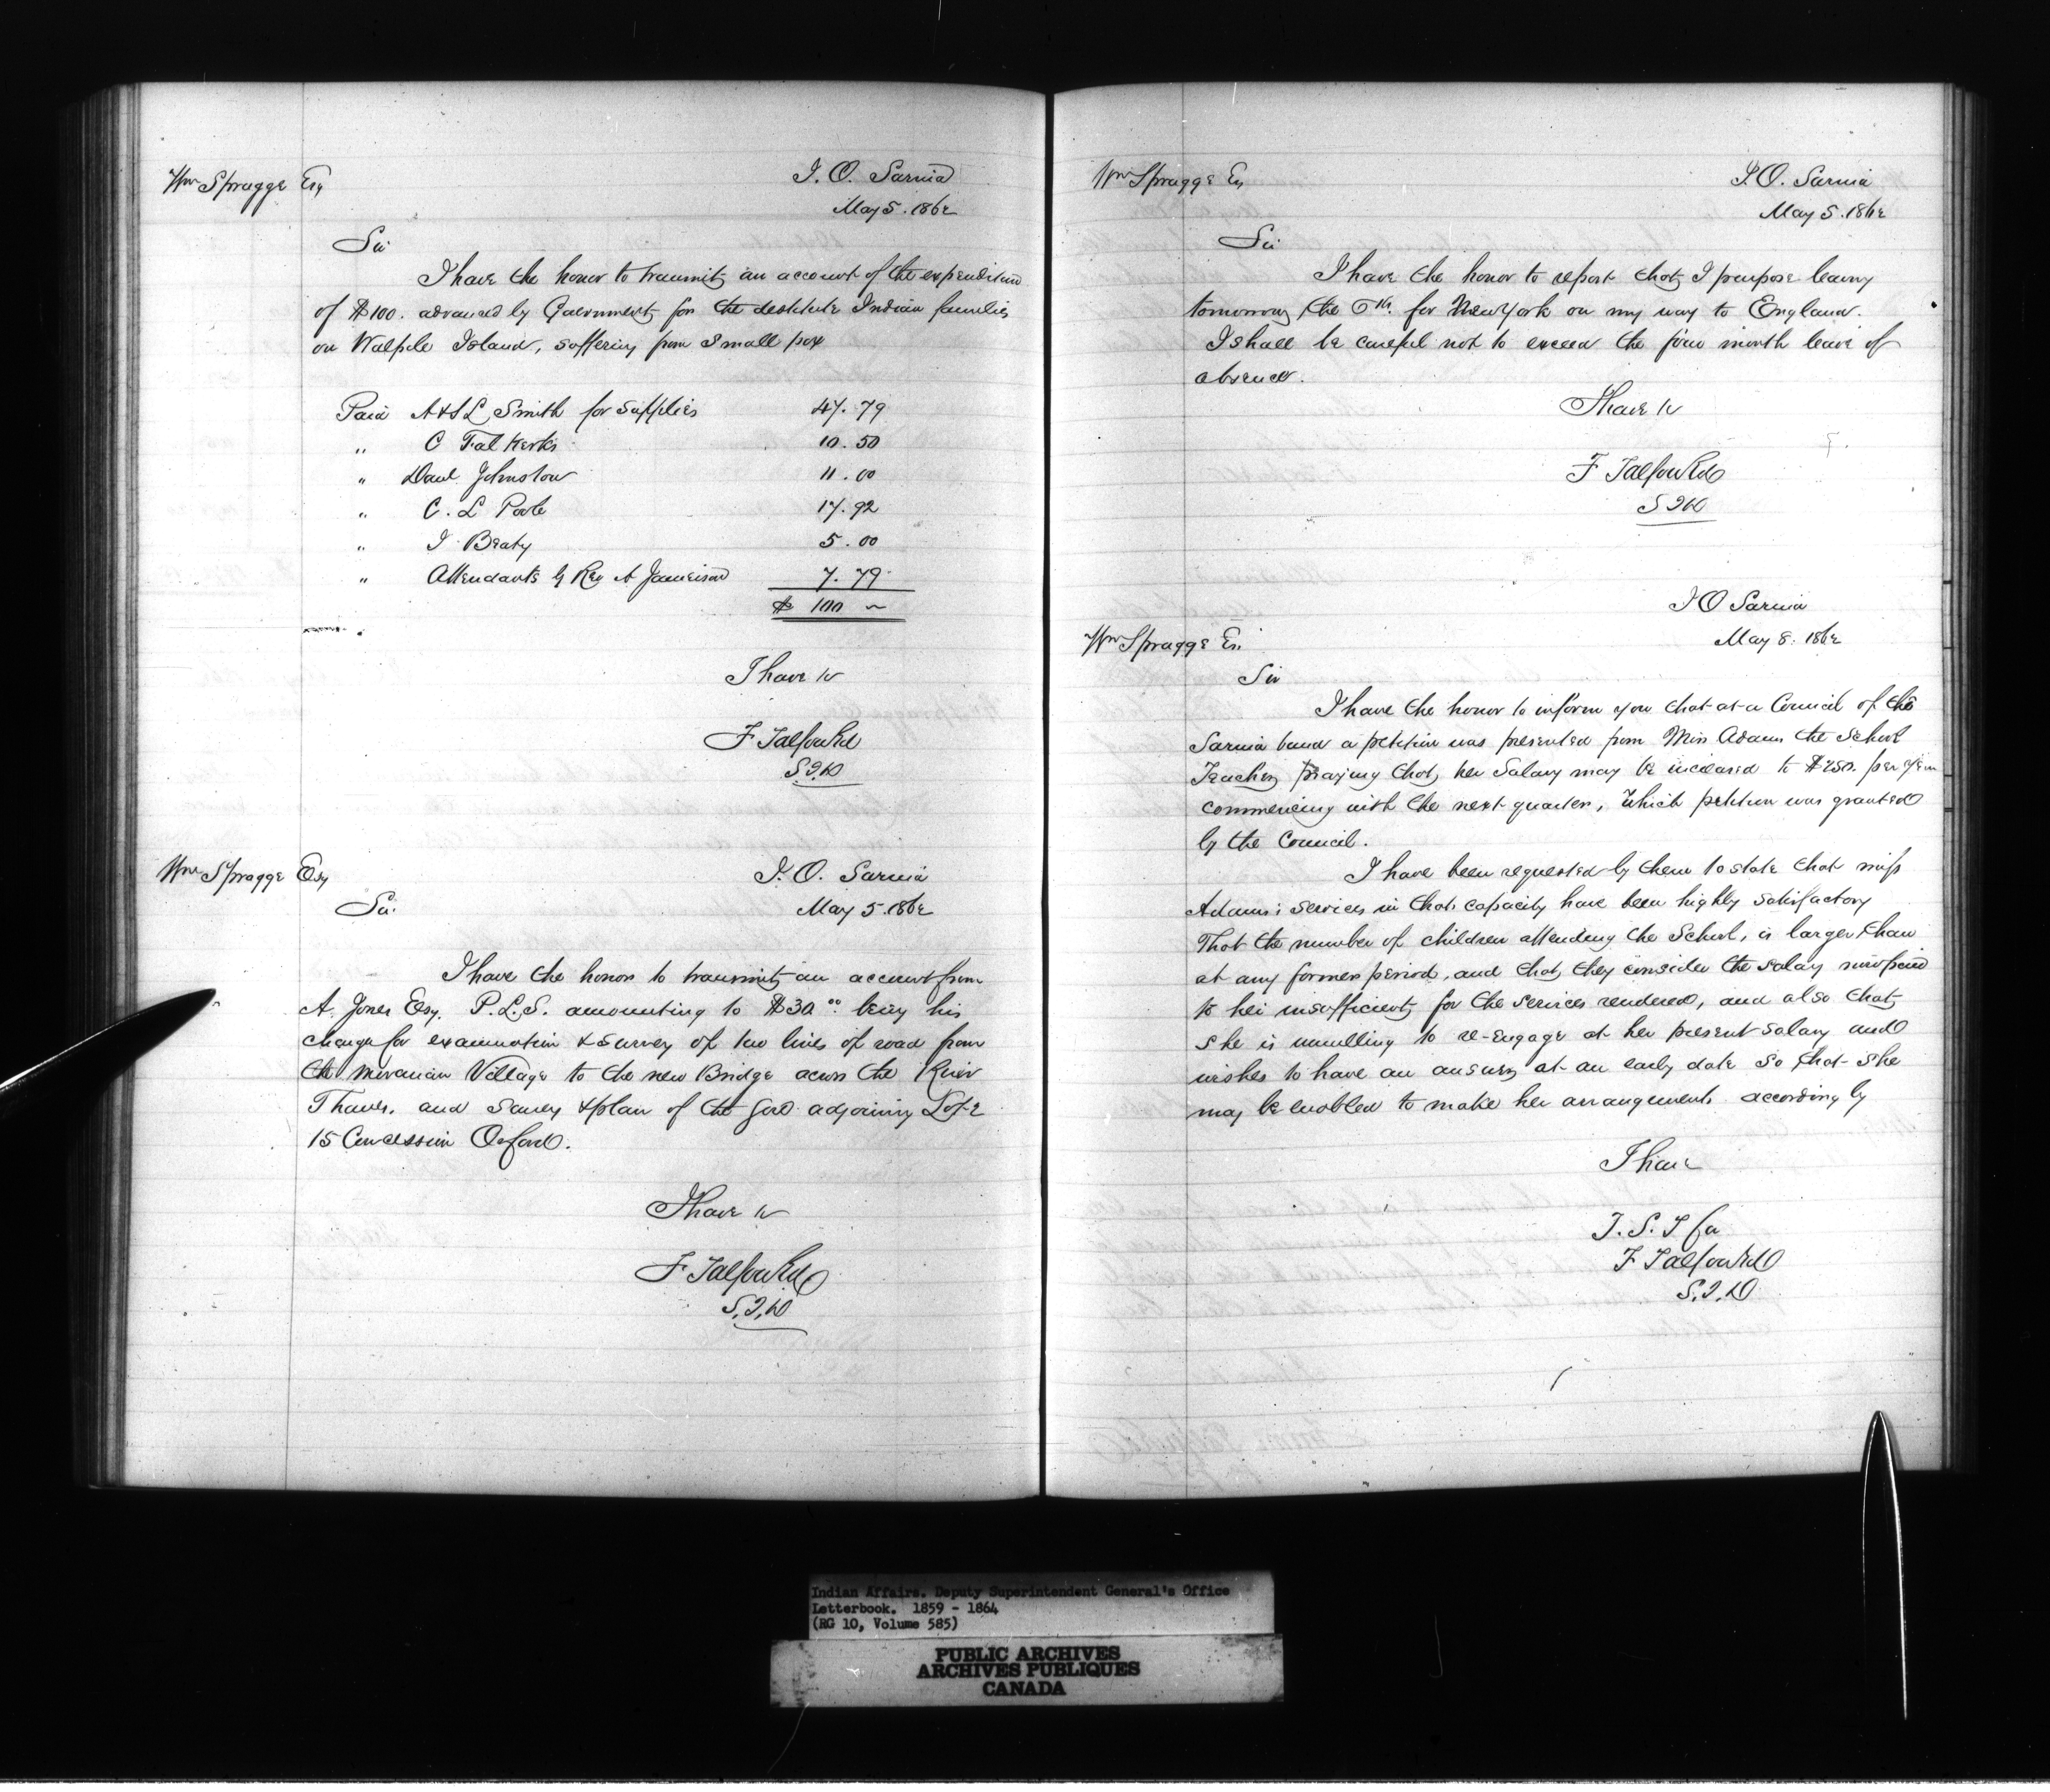 Wm Spragge Esq
I. O. Sarnia
May 5. 1862
Sir
I have the honor to transmit an account of the expenditure
of $100. advanced by Government for the destitute Indian families
on Walpole Island, suffering from Small pox
Paid A & S L Smith for supplies 47.79
" C Falkerks 10.50
" Danl Johnston 11.00
" C. L Poole 17.92
" I Beaty 5.00
" Attendants by Rev A Jameison 7.79
$ 100 ~
I have &c
F Talfourd
S.I.D
Wm Spragge Esq
I. O. Sarnia
May 5. 1862
Sir
I have the honor to transmit an account from
A. Jones Esq. P.L.S. amounting to $30 00 being his
charge for examination & survey of two lines of road from
the Moravian Village to the new Bridge across the River
Thames. and Survey & plan of the Gore adjoining Lot
15 Concession Orford.
I have &c
F Talfourd
S.I.D
Wm Spragge Es
I. O. Sarnia
May 5. 1862
Sir
I have the honor to report that I purpose leaving
tomorrow the 6th. for New York on my way to England.
I shall be careful not to exceed the four month leave of
absence.
I have &c
F Talfourd
S I D
I O Sarnia
May 8. 1862
Wm Spragge Es.
Sir
I have the honor to inform you that at a Council of the
Sarnia band a petition was presented from Miss Adams the School
Teacher praying that her Salary may be increased to $250. per
commencing with the next quarter, which petition was granted
by the Council.
I have been requested by them to state that miss
Adams's services in that capacity have been highly satisfactory
That the number of children attending the School, is larger than
at any former period, and that they consider the salary now paid
to her insufficient for the services rendered, and also that
she is unwilling to re-engage at her present salary and
wishes to have an answer at an early date so that she
may be enabled to make her arrangements accordingly
I have
F Talfourd
S.I.D
Indian Affairs. Deputy Superintendent General's Office
Letterbook. 1859 - 1864
(RG 10, Volume 585)
PUBLIC ARCHIVES
ARCHIVES PUBLIQUES
CANADA